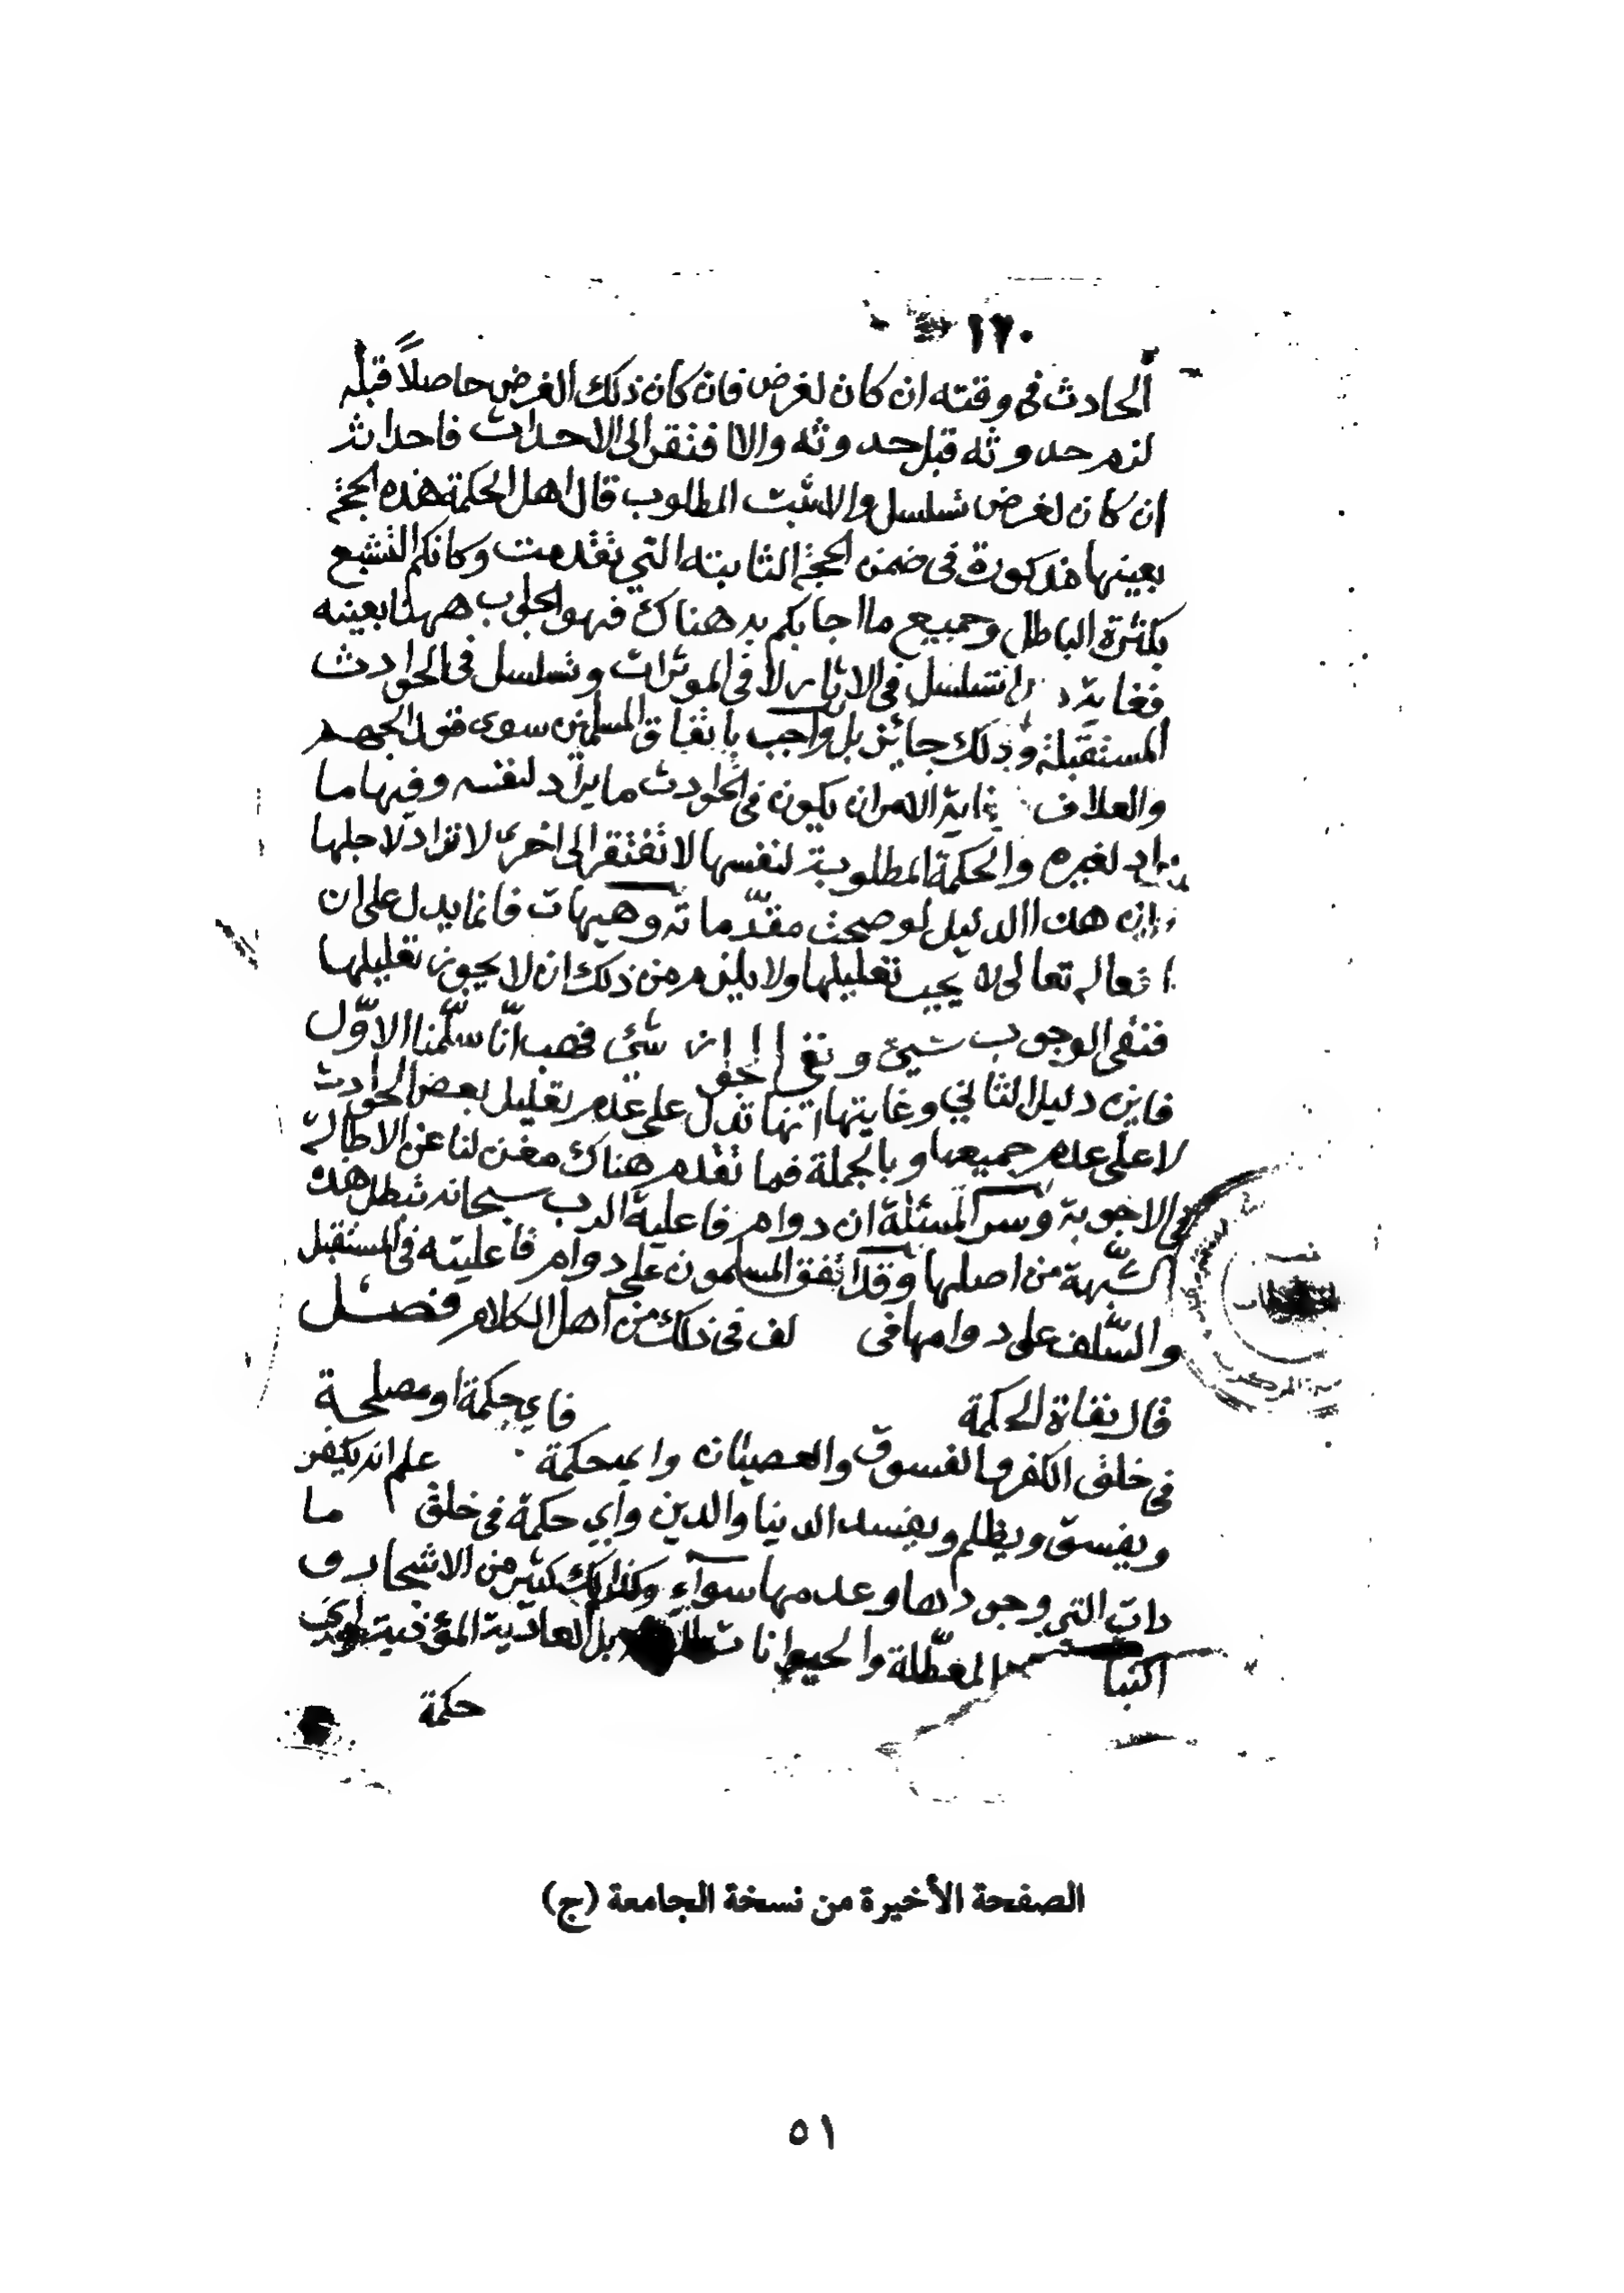 ١٢٠
الحادث في وقته ان كان لغرض فان كان ذلك الغرض حاصلاً قبله
لزم حدوثه قبل حدوثه والا افتقر الى الاحداث فاحداثه
ان كان لغرض تسلسل والا ثبت المطلوب قال اهل الحكمة هذه الحجة
بعينها مذكورة في ضمن الحجة الثانية التي تقدمت وكانكم التشبع
بكثرة الباطل وجميع ما اجابكم به هناك فهو الجواب ههنا بعينه
فغايته تسلسل في الاثار لا في الموثرات وتسلسل في الحوادث
المستقبلة وذلك جائز بل واجب باتفاق المسلمين سوى قول الجهم
والعلاف غاية الامر ان يكون في الحوادث ما يراد لنفسه وفيها ما
يراد لغيره والحكمة المطلوبة لنفسها لا تفتقر الى اخرى لا تراد لاجلها
هذا الدليل لو صحت مقدّماته وهيهات فانما يدل على ان
افعاله تعالى لا يجب تعليلها ولا يلزم من ذلك ان لا يجوز تعليلها
فنفي الوجوب شيئ ونفي شئ فهب انّا سلّمنا الاوّل
دليل الثاني وغايتها انها تدل على عدم تعليل بعض الحوادث
لا على عدم جميعها وبالجملة فما تقدم هناك مغن لنا عن الاطالة
في الاجوبة وسر المسئلة ان دوام فاعلية الرب سبحانه تبطل هذه
الشّبهة من اصلها وقد اتفق المسلمون على دوام فاعليته في المستقبل
والسّلف على دوامها في لف في ذلك من اهل الكلام فصل
قال نفاة الحكمة فاي حكمة او مصلحة
في خلق الكفر والفسوق والعصيان واي حكمة علم انه يكفر
ويفسق ويظلم ويفسد الدنيا والدين واي حكمة في خلق ما
دات التي وجودها وعدمها سوآء وكذلك كثير من الاشجار و
المعطّلة والحيوانات بل العادية المؤذية
حكمة
الصفحة الأخيرة من نسخة الجامعة (ج)
٥١